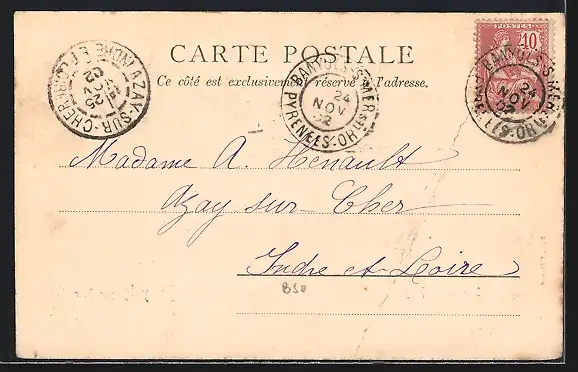 CARTE POSTALE
Ce côté est exclusivement réservé à l'adresse.
10
AZAY-SUR-CHER
25
NOV
02
BANYULS-S-MER
24
NOV
02
PYRÉNÉES-ORLES
BANYULS-S-MER
24
NOV
02
ES-ORLES
Madame A. Hénault
Azay sur Cher
Indre et Loire
B50